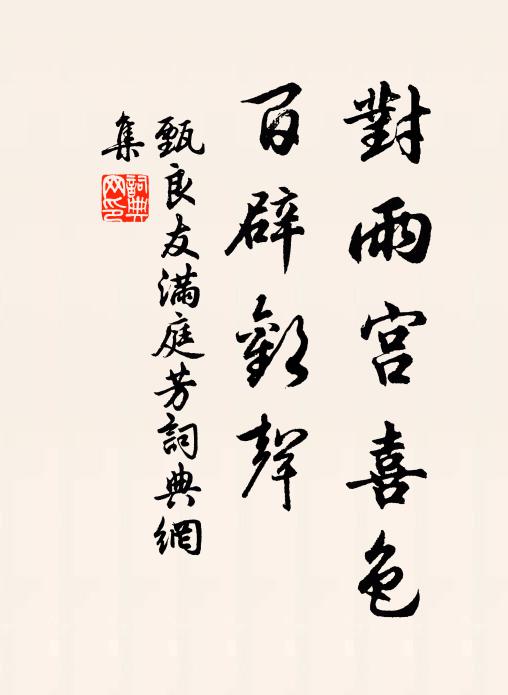 對雨宮喜色
百辟歡聲
甄良友滿庭芳詞典網
集
詞典網印